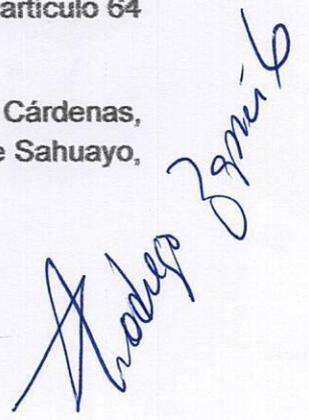 artículo 64
Cárdenas,
e Sahuayo,
Rodrigo